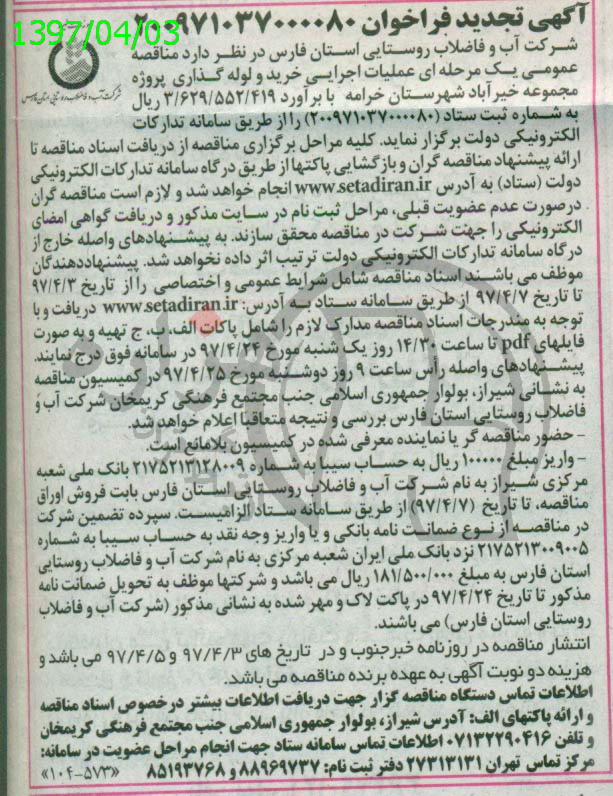 1397/04/03
آگهی تجدید فراخوان ۲۰۰۹۷۱۰۳۷۰۰۰۰۸۰
شرکت آب و فاضلاب روستایی استان فارس در نظر دارد مناقصه
عمومی یک مرحله ای عملیات اجرایی خرید و لوله گذاری پروژه
مجموعه خیرآباد شهرستان خرامه با برآورد ۳/۶۲۹/۵۵۲/۴۱۹ ریال
شرکت آب و فاضلاب روستایی استان فارس
به شماره ثبت ستاد (۲۰۰۹۷۱۰۳۷۰۰۰۰۸۰) را از طریق سامانه تدارکات
الکترونیکی دولت برگزار نماید. کلیه مراحل برگزاری مناقصه از دریافت اسناد مناقصه تا
ارائه پیشنهاد مناقصه گران و بازگشایی پاکتها از طریق درگاه سامانه تدارکات الکترونیکی
دولت (ستاد) به آدرس www.setadiran.ir انجام خواهد شد و لازم است مناقصه گران
درصورت عدم عضویت قبلی، مراحل ثبت نام در سایت مذکور و دریافت گواهی امضای
الکترونیکی را جهت شرکت در مناقصه محقق سازند. به پیشنهادهای واصله خارج از
درگاه سامانه تدارکات الکترونیکی دولت ترتیب اثر داده نخواهد شد. پیشنهاددهندگان
موظف می باشند اسناد مناقصه شامل شرایط عمومی و اختصاصی را از تاریخ ۹۷/۴/۳
تا تاریخ ۹۷/۴/۷ از طریق سامانه ستاد به آدرس: www.setadiran.ir دریافت و با
توجه به مندرجات اسناد مناقصه مدارک لازم را شامل پاکات الف، ب، ج تهیه و به صورت
فایلهای pdf تا ساعت ۱۴/۳۰ روز یک شنبه مورخ ۹۷/۴/۲۴ در سامانه فوق درج نمایند.
پیشنهادهای واصله رأس ساعت ۹ روز دوشنبه مورخ ۹۷/۴/۲۵ در کمیسیون مناقصه
به نشانی شیراز، بولوار جمهوری اسلامی جنب مجتمع فرهنگی کریمخان شرکت آب و
فاضلاب روستایی استان فارس بررسی و نتیجه متعاقبا اعلام خواهد شد.
- حضور مناقصه گر یا نماینده معرفی شده در کمیسیون بلامانع است.
- واریز مبلغ ۱۰۰۰۰۰ ریال به حساب سیبا به شماره ۲۱۷۵۲۱۳۱۲۸۰۰۹ بانک ملی شعبه
مرکزی شیراز به نام شرکت آب و فاضلاب روستایی استان فارس بابت فروش اوراق
مناقصه، تا تاریخ (۹۷/۴/۷) از طریق سامانه ستاد الزامیست. سپرده تضمین شرکت
در مناقصه از نوع ضمانت نامه بانکی و یا واریز وجه نقد به حساب سیبا به شماره
۲۱۷۵۲۱۳۰۰۹۰۰۵ نزد بانک ملی ایران شعبه مرکزی به نام شرکت آب و فاضلاب روستایی
استان فارس به مبلغ ۱۸۱/۵۰۰/۰۰۰ ریال می باشد و شرکتها موظف به تحویل ضمانت نامه
مذکور تا تاریخ ۹۷/۴/۲۴ در پاکت لاک و مهر شده به نشانی مذکور (شرکت آب و فاضلاب
روستایی استان فارس) می باشند.
انتشار مناقصه در روزنامه خبرجنوب و در تاریخ های ۹۷/۴/۳ و ۹۷/۴/۵ می باشد و
هزینه دو نوبت آگهی به عهده برنده مناقصه می باشد.
اطلاعات تماس دستگاه مناقصه گزار جهت دریافت اطلاعات بیشتر درخصوص اسناد مناقصه
و ارائه پاکتهای الف: آدرس شیراز، بولوار جمهوری اسلامی جنب مجتمع فرهنگی کریمخان
و تلفن ۰۷۱۳۲۲۹۰۴۱۶ اطلاعات تماس سامانه ستاد جهت انجام مراحل عضویت در سامانه:
مرکز تماس تهران ۲۷۳۱۳۱۳۱ دفتر ثبت نام: ۸۸۹۶۹۷۳۷ و ۸۵۱۹۳۷۶۸ «۱۰۴-۵۷۳»